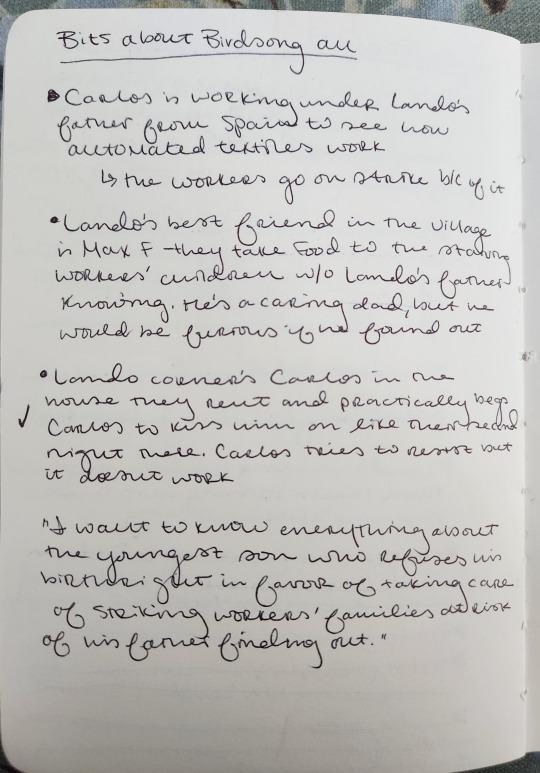 Bits about Birdsong au
• Carlos is working under Lando's
father from Spain to see how
automated textiles work
↳ the workers go on strike b/c of it
• Lando's best friend in the village
is Max F - they take food to the starving
workers' children w/o Lando's father
knowing. He's a caring dad, but he
would be furious if he found out
• Lando corner's Carlos in the
house they rent and practically begs
✓ Carlos to kiss him on like their second
night there. Carlos tries to resist but
it doesnt work
"I want to know everything about
the youngest son who refuses his
birthright in favor of taking care
of striking workers' families at risk
of his father finding out."